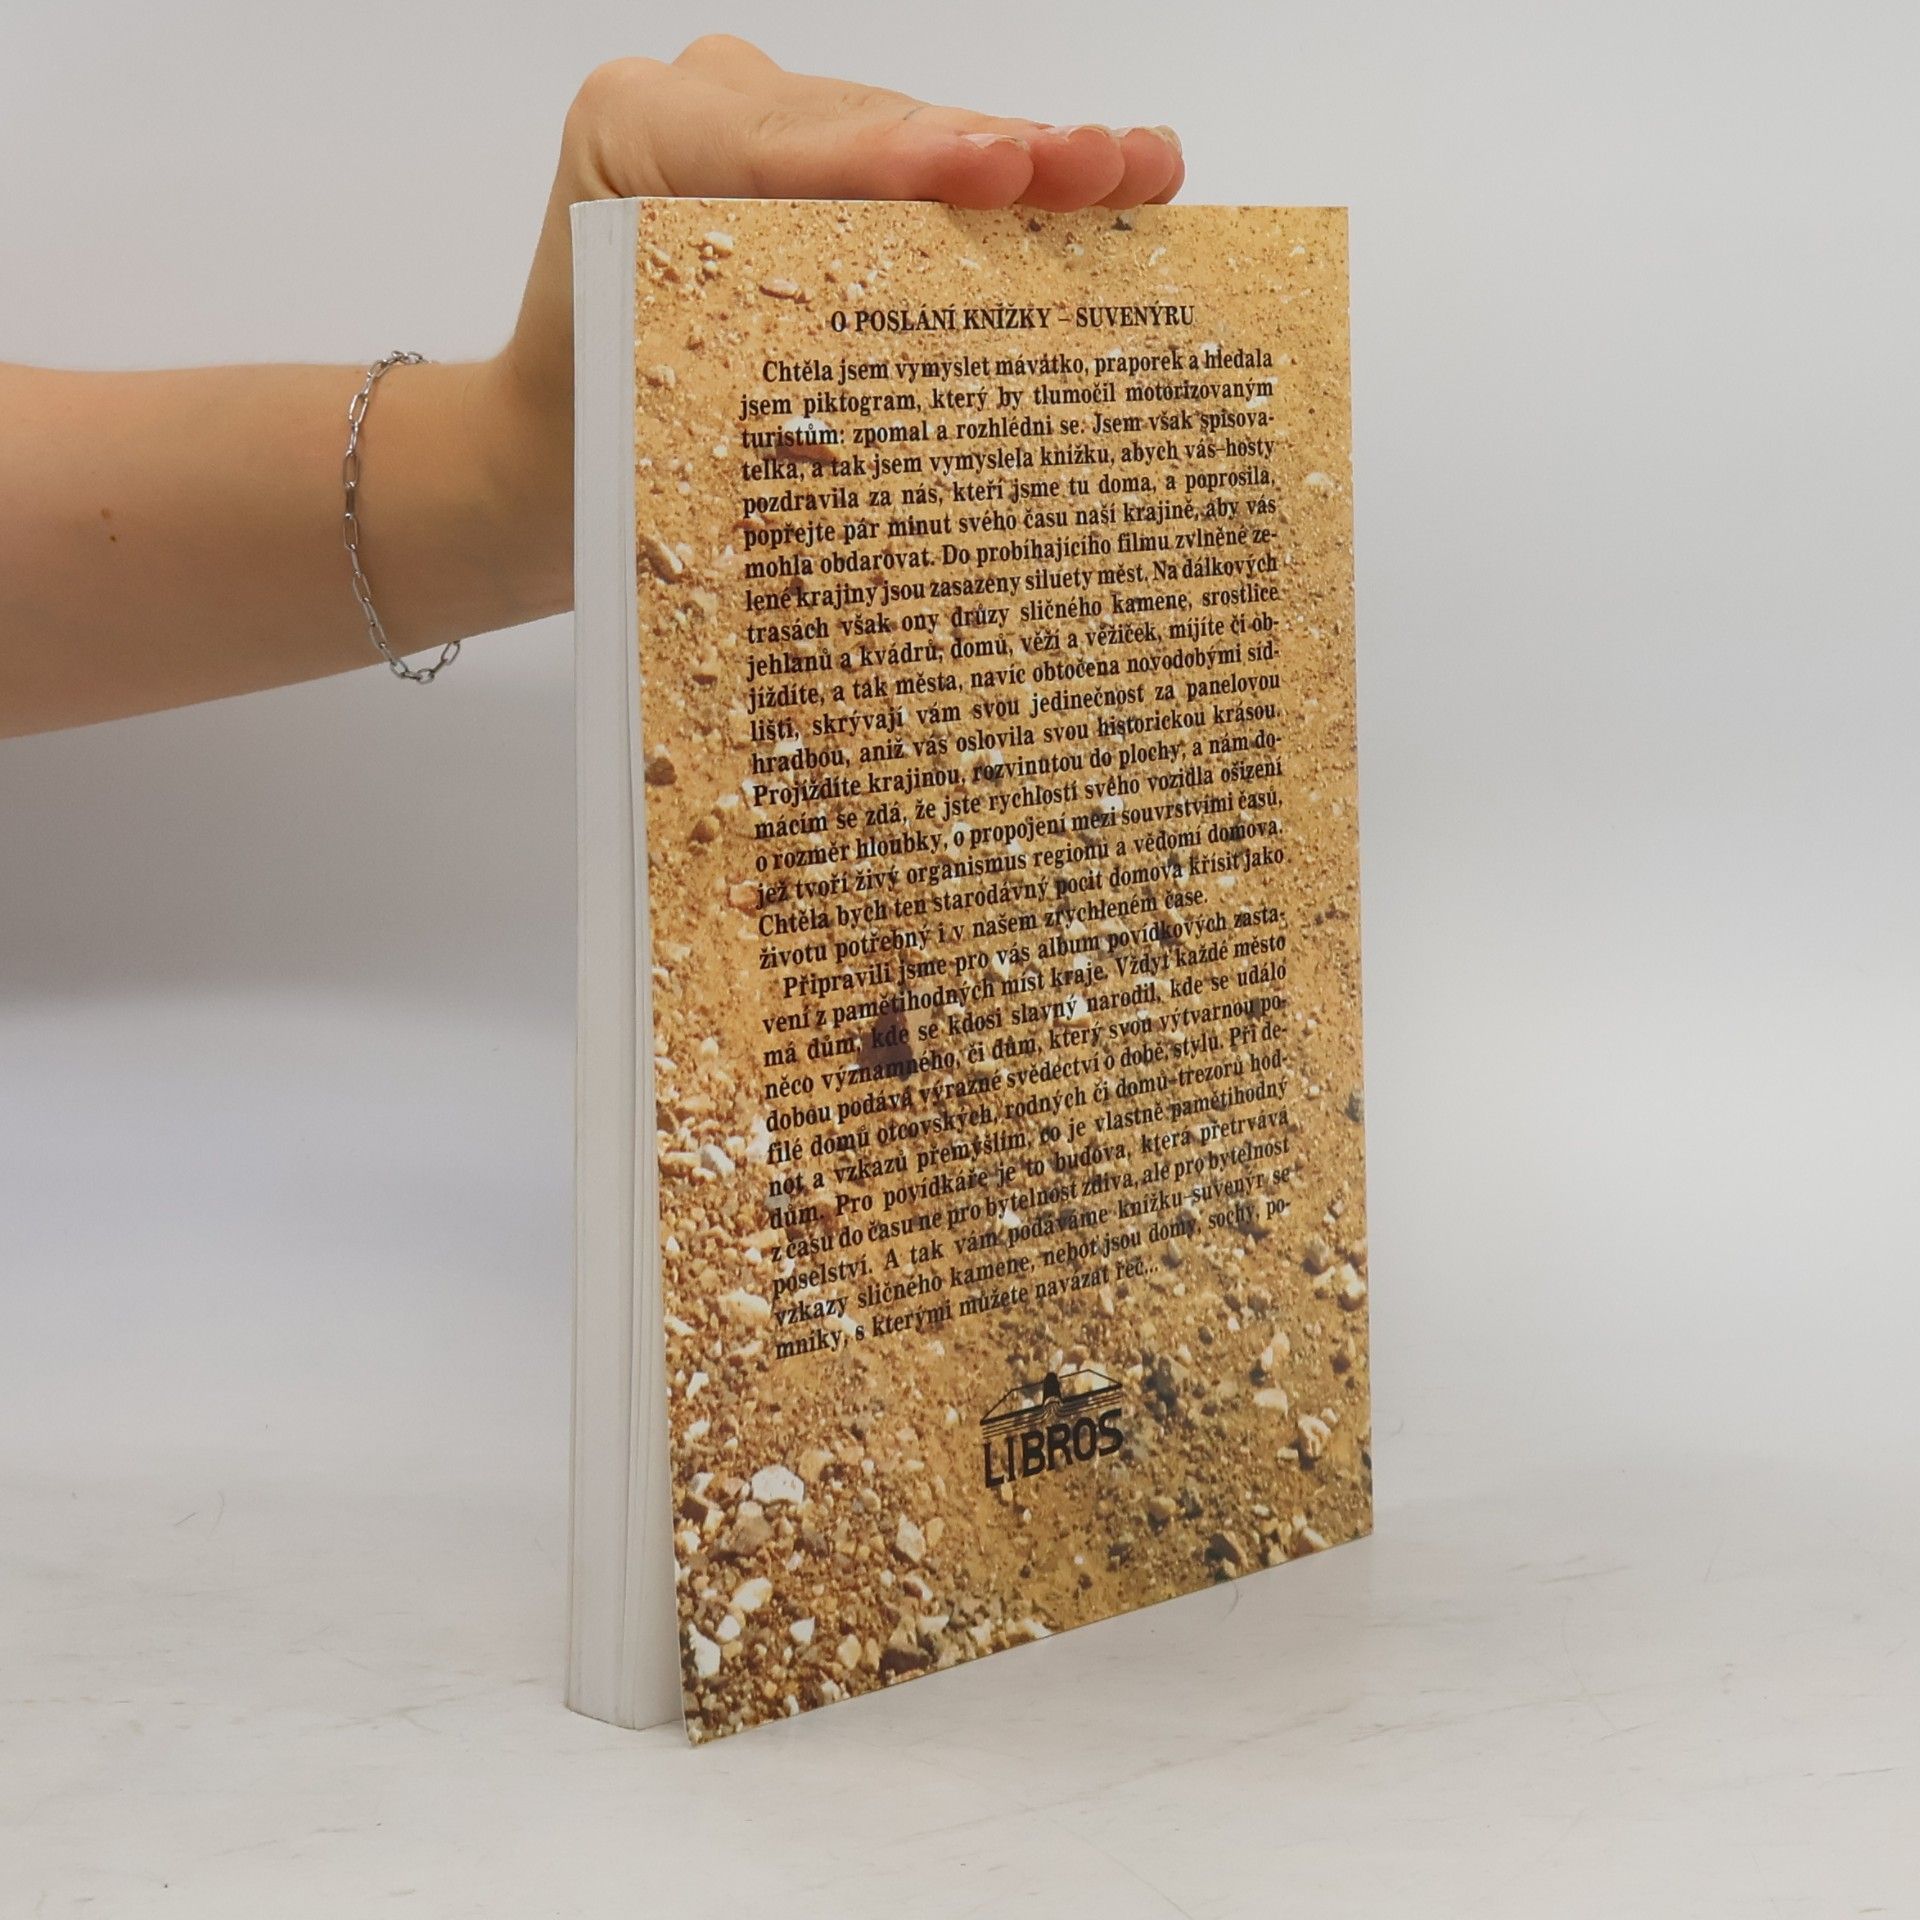 O POSLÁNÍ KNÍŽKY – SUVENÝRU
Chtěla jsem vymyslet mávátko, praporek a hledala
jsem piktogram, který by tlumočil motorizovaným
turistům: zpomal a rozhlédni se. Jsem však spisova-
telka, a tak jsem vymyslela knížku, abych vás–hosty
pozdravila za nás, kteří jsme tu doma, a poprosila,
popřejte pár minut svého času naší krajině, aby vás
mohla obdarovat. Do probíhajícího filmu zvlněné ze-
lené krajiny jsou zasazeny siluety měst. Na dálkových
trasách však ony drůzy sličného kamene, srostlice
jehlanů a kvádrů, domů, věží a věžiček, míjíte či ob-
jíždíte, a tak města, navíc obtočena novodobými síd-
lišti, skrývají vám svou jedinečnost za panelovou
hradbou, aniž vás oslovila svou historickou krásou.
Projíždíte krajinou, rozvinutou do plochy, a nám do-
mácím se zdá, že jste rychlostí svého vozidla ošizeni
o rozměr hloubky, o propojení mezi souvrstvími časů,
jež tvoří živý organismus regionu a vědomí domova.
Chtěla bych ten starodávný pocit domova křísit jako
životu potřebný i v našem zrychleném čase.
Připravili jsme pro vás album povídkových zasta-
vení z pamětihodných míst kraje. Vždyť každé město
má dům, kde se kdosi slavný narodil, kde se událo
něco významného, či dům, který svou výtvarnou po-
dobou podává výrazné svědectví o době, stylu. Při de-
filé domů otcovských, rodných či domů–trezorů hod-
not a vzkazů přemýšlím, co je vlastně pamětihodný
dům. Pro povídkáře je to budova, která přetrvává
z času do času ne pro bytelnost zdiva, ale pro bytelnost
poselství. A tak vám podáváme knížku–suvenýr se
vzkazy sličného kamene, neboť jsou domy, sochy, po-
mníky, s kterými můžete navázat řeč...
LIBROS